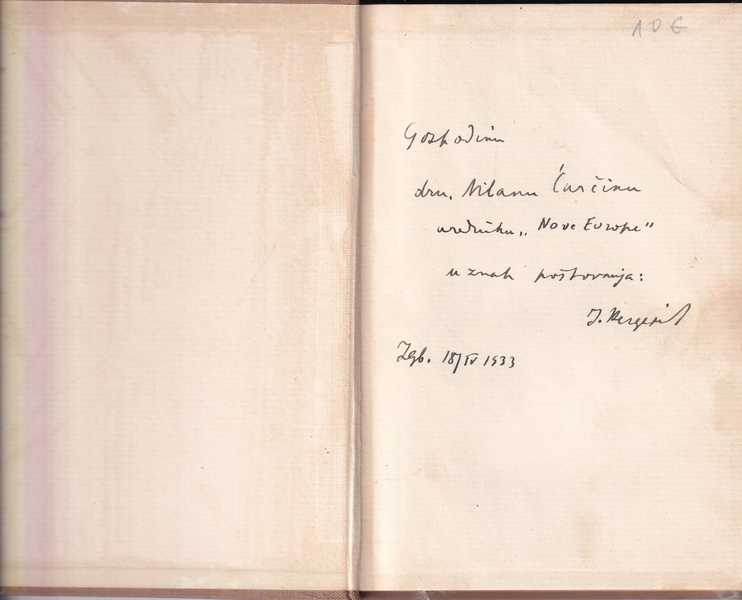 10 €
Gospodinu
dru. Milanu Ćurčinu
uredniku „Nove Europe"
u znak poštovanja:
J. Hergešić
Zgb. 18/IV 1933